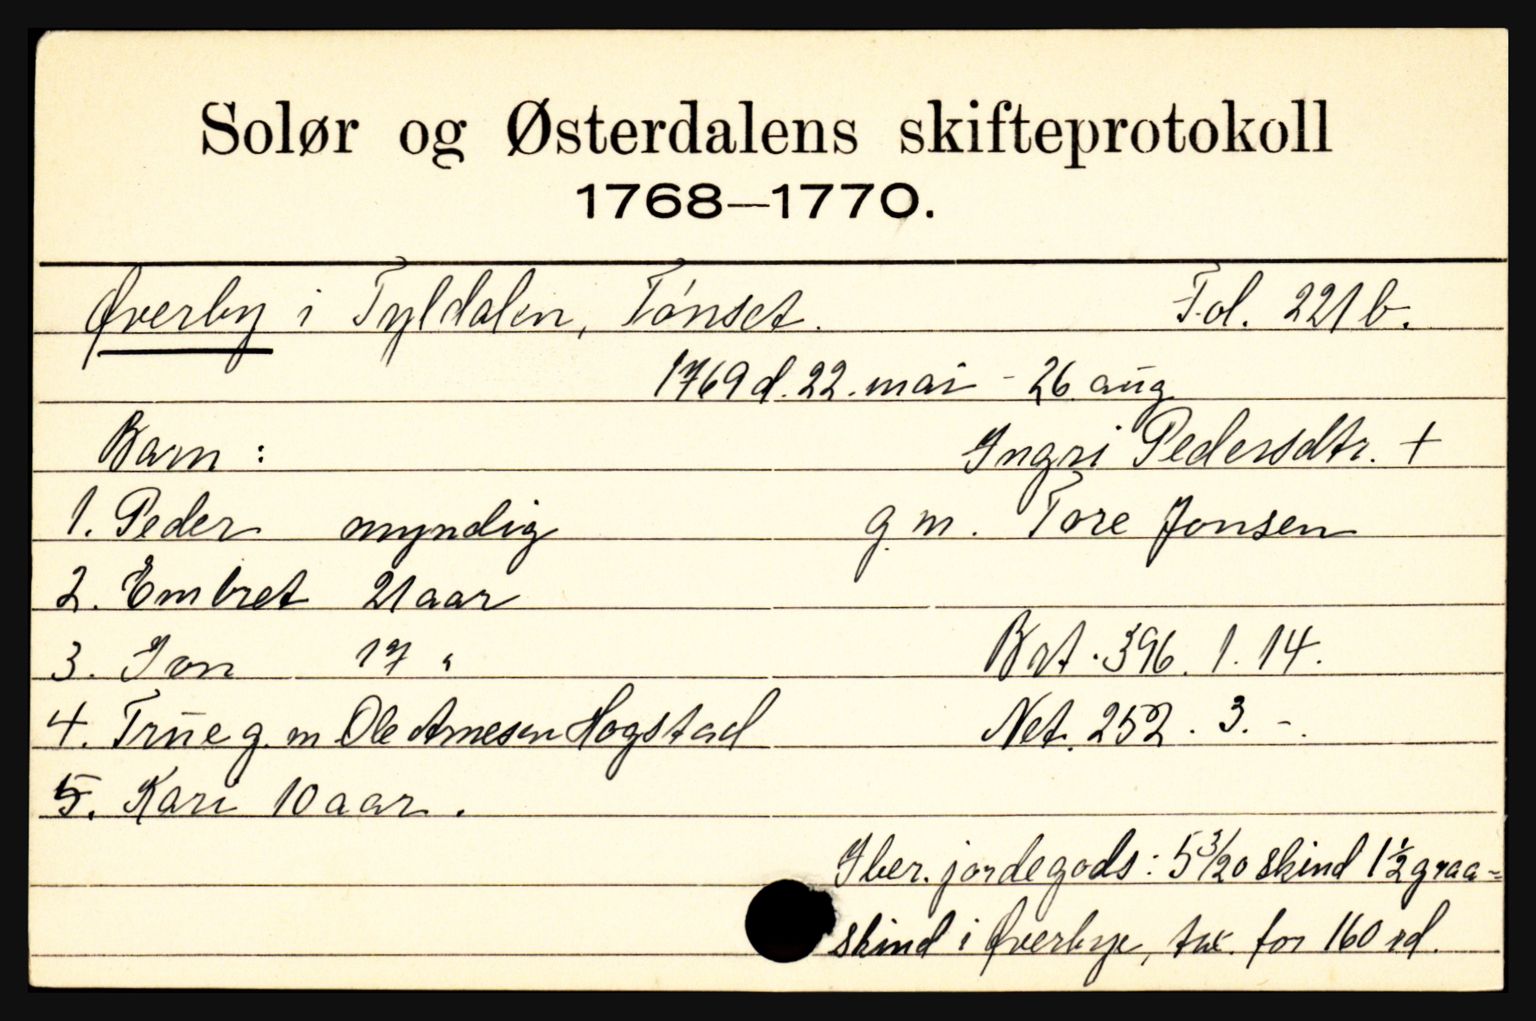 Solør og Østerdalens skifteprotokoll
1768—1770.
Øverby i Tyldalen, Tónset. Fol. 221 b.
1769 d. 22. mai - 26. aug
Barn : Ingri Pedersdtr. +
1. Peder myndig g. m. Tore Jonsen
2. Embret 21 aar
3. Jon 17 " Brt. 396. 1. 14.
4. Trūe g. m Ole Arnesen Hogstad Net. 252. 3. -.
5. Kari 10 aar.
Iber. jordegods: 5 3/20 skind 1 1/2 graa-
skind i Øverbye, tax. for 160 rd.